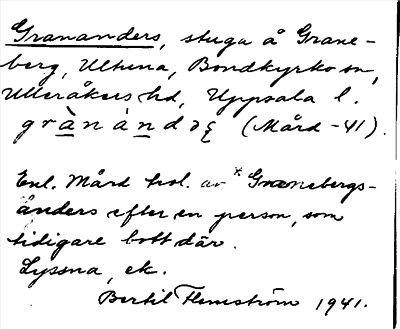 Grananders, stuga å Grane-
berg, Ultuna, Bondkyrko sn,
Ulleråkers hd, Uppsala l.
grànándəʂ (Mård -41).
Enl. Mård hol. av *Granebergs-
ånders efter en person, som
tidigare bott där.
Lyssna, ek.
Bertil Flemström 1941.